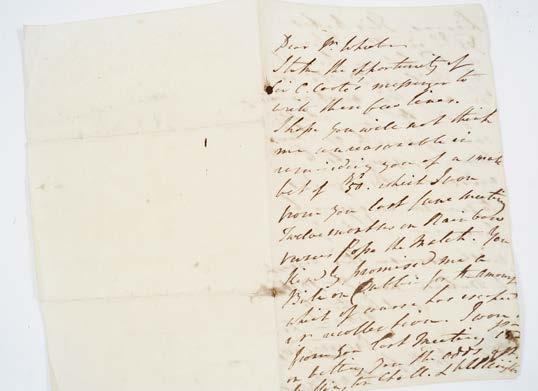 Dear Mr Whaley
I take the opportunity of
Sir C. Coote's messenger to
write these few lines.
I hope you will not think
me unreasonable in
reminding you of a small
bet of 50. which I won
from you last June meeting
Twelve months on Rainbow
versus Pope the Match. You
kindly promised me a
Bill on Dublin for the amount
which of course has escaped
yr recollection. I won
from you last Meeting
on betting you the odds